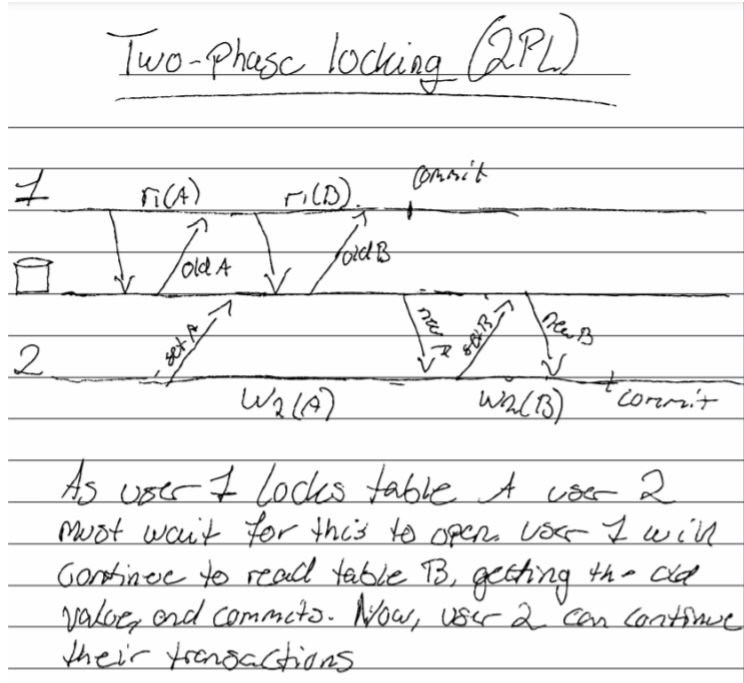 Two-phase locking (2PL)
commit
1 r1(A) r1(B)
old A old B
set A new A set B new B
2
W2(A) W2(B) commit
As user 1 locks table A user 2
must wait for this to open. User 1 will
continue to read table B, getting the old
value, and commits. Now, user 2 can continue
their transactions